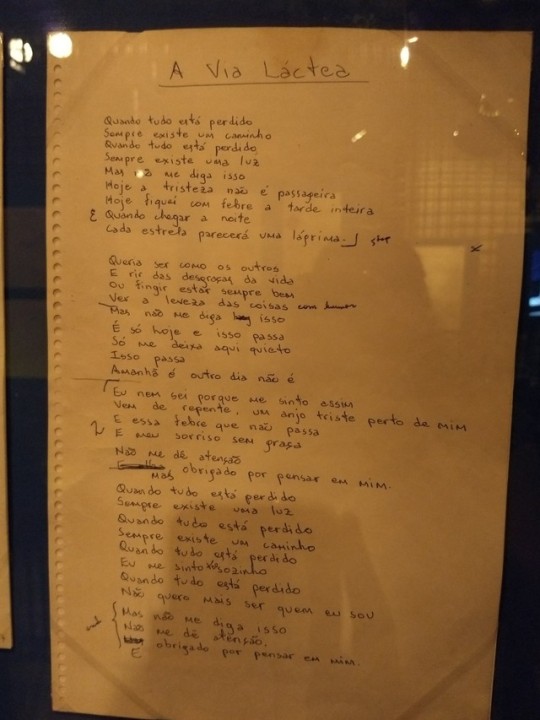 A Via Láctea
Quando tudo está perdido
Sempre existe um caminho
Quando tudo está perdido
Sempre existe uma luz
Mas não me diga isso
Hoje a tristeza não é passageira
Hoje fiquei com febre a tarde inteira
E Quando chegar a noite
Cada estrela parecerá uma lágrima
Queria ser como os outros
E rir das desgraças da vida
Ou fingir estar sempre bem
Ver a leveza das coisas com humor
Mas não me diga isso
É só hoje e isso passa
Só me deixa aqui quieto
Isso passa
Amanhã é outro dia não é
Eu nem sei porque me sinto assim
Vem de repente, um anjo triste perto de mim
E essa febre que não passa
E meu sorriso sem graça
Não me dê atenção
Mas obrigado por pensar em mim.
Quando tudo está perdido
Sempre existe uma luz
Quando tudo está perdido
Sempre existe um caminho
Quando tudo está perdido
Eu me sinto tão sozinho
Quando tudo está perdido
Não quero mais ser quem eu sou
Mas não me diga isso
Não me dê atenção.
E obrigado por pensar em mim.